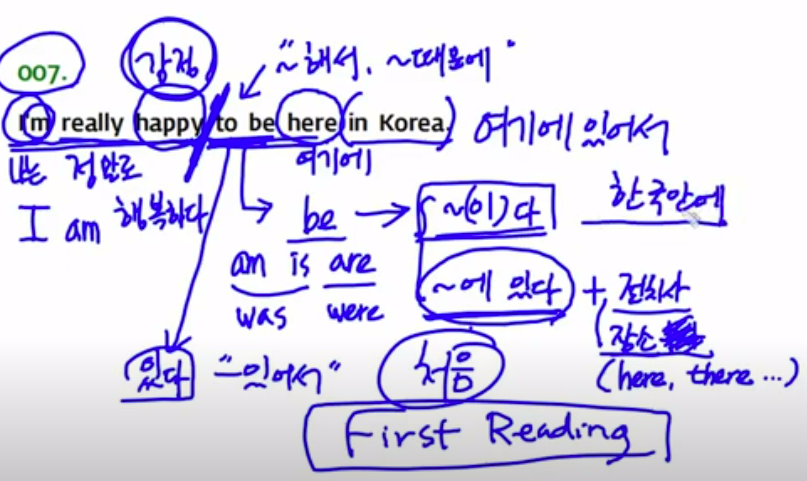 007. 감정 "~해서, ~때문에"
I'm really happy to be here in Korea. 여기에 있어서
나는 정말로 여기에
I am 행복하다 be → ~(이)다 한국안에
am is are ~에 있다 + 전치사
was were 장소
있다 "~있어서" 처음 (here, there ...)
First Reading